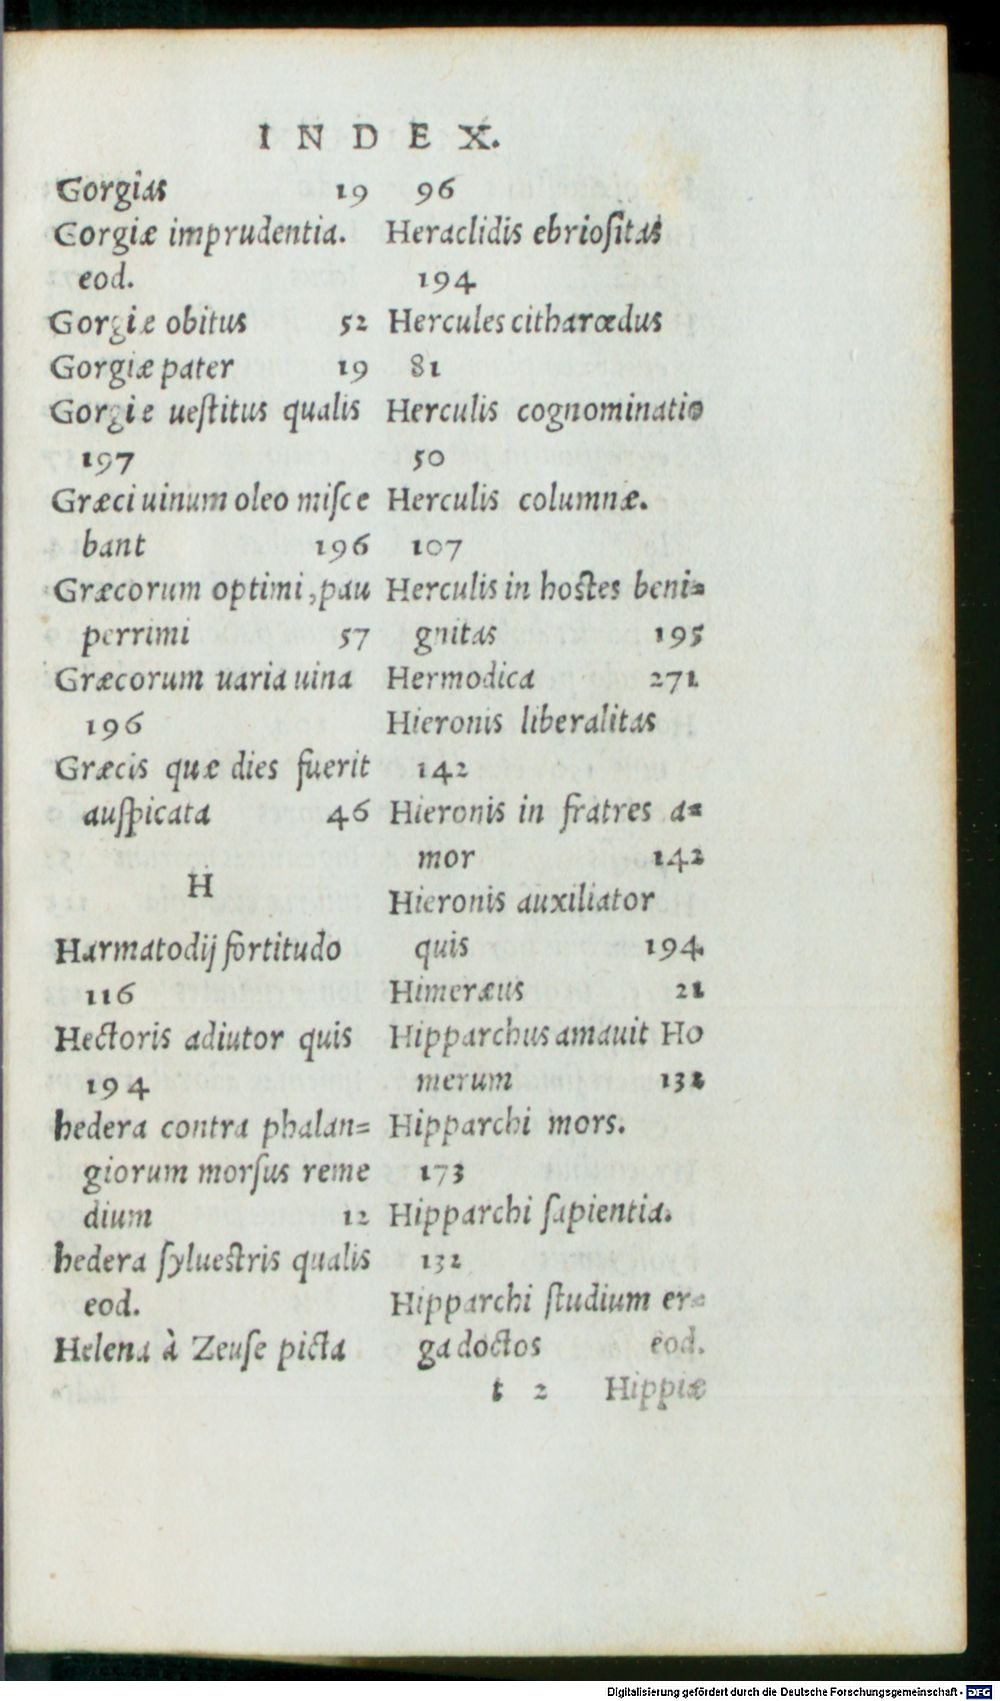 INDEX.
Gorgias 19
Gorgiæ imprudentia.
eod.
Gorgiæ obitus 52
Gorgiæ pater 19
Gorgie ueſtitus qualis
197
Græci uinum oleo miſce
bant 196
Græcorum optimi, pau
perrimi 57
Græcorum uaria uina
196
Græcis quæ dies fuerit
auſpicata 46
H
Harmatodij fortitudo
116
Hectoris adiutor quis
194
hedera contra phalan=
giorum morſus reme
dium 12
hedera ſylueſtris qualis
eod.
Helena à Zeuſe picta
96
Heraclidis ebrioſitas
194
Hercules citharœdus
81
Herculis cognominatio
50
Herculis columnæ.
107
Herculis in hoſtes beni=
gnitas 195
Hermodica 271
Hieronis liberalitas
142
Hieronis in fratres a=
mor 142
Hieronis auxiliator
quis 194
Himeræus 21
Hipparchus amauit Ho
merum 132
Hipparchi mors.
173
Hipparchi ſapientia.
132
Hipparchi ſtudium er=
ga doctos eod.
t 2 Hippiæ
Digitalisierung gefördert durch die Deutsche Forschungsgemeinschaft - DFG